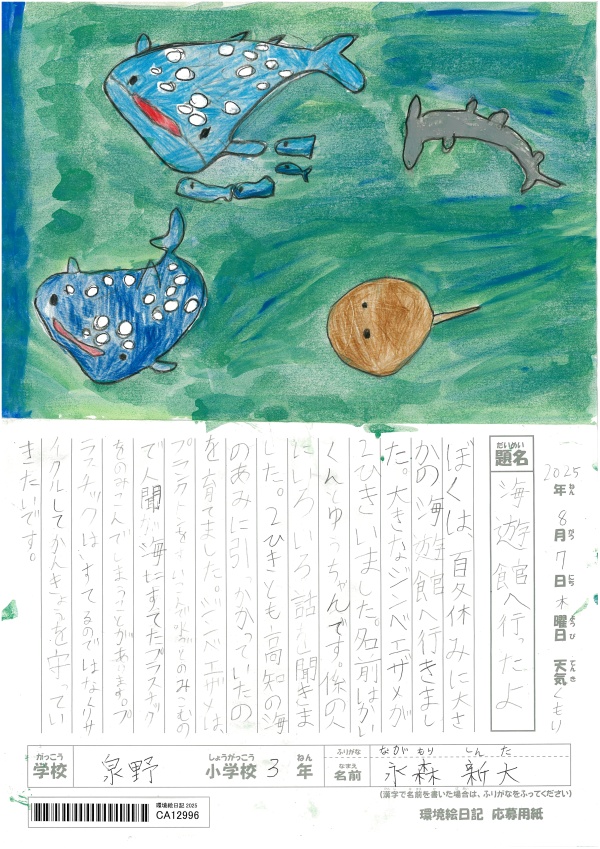 2025年ねん 8月がつ 7日にち 木曜日ようび 天気てんき くもり
題名だいめい 海遊館へ行ったよ
ぼくは、夏休みに大さ
かの海遊館へ行きまし
た。大きなジンベエザメが
2ひきいました。名前はかい
くんとゆうちゃんです。係の人
にいろいろ話し聞きま
した。2ひきとも高知の海
のあみに引っかかっていたの
を育てました。ジンベエザメは
プランクトンを水とのみこむの
で人間が海にすてたプラスチック
をのみこんでしまうことがあります。プ
ラスチックはすてるのではなくリサ
イクルしてかんきょうを守ってい
きたいです。
学校がっこう 泉野 小学校しょうがっこう 3 年ねん
ふりがな ながもり しんた
名前なまえ 永森 新大
(漢字で名前を書いた場合は、ふりがなをふってください)
環境絵日記 2025
CA12996
環境絵日記 応募用紙